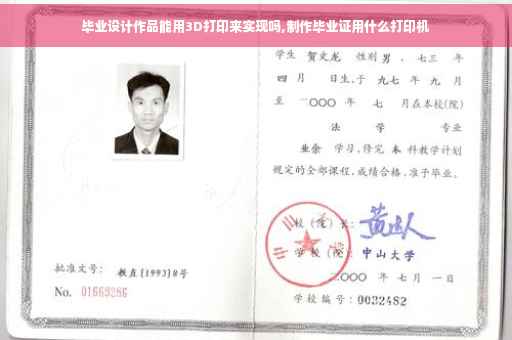 毕业设计作品能用3D打印来实现吗,制作毕业证用什么打印机
学生 贺文龙 性别 男 、七三 年
四 月 日生,于 九七 年 九 月
至 二〇〇〇 年 七 月在本校(院)
法 学 专业
业余 学习,修完 本 科教学计划
规定的全部课程,成绩合格,准予毕业。
校(院)长:
学校(院): 中山大学
批准文号: 教直[1993]8号
二〇〇〇 年 七 月 一 日
No. 01669286
学校编号: 0032482